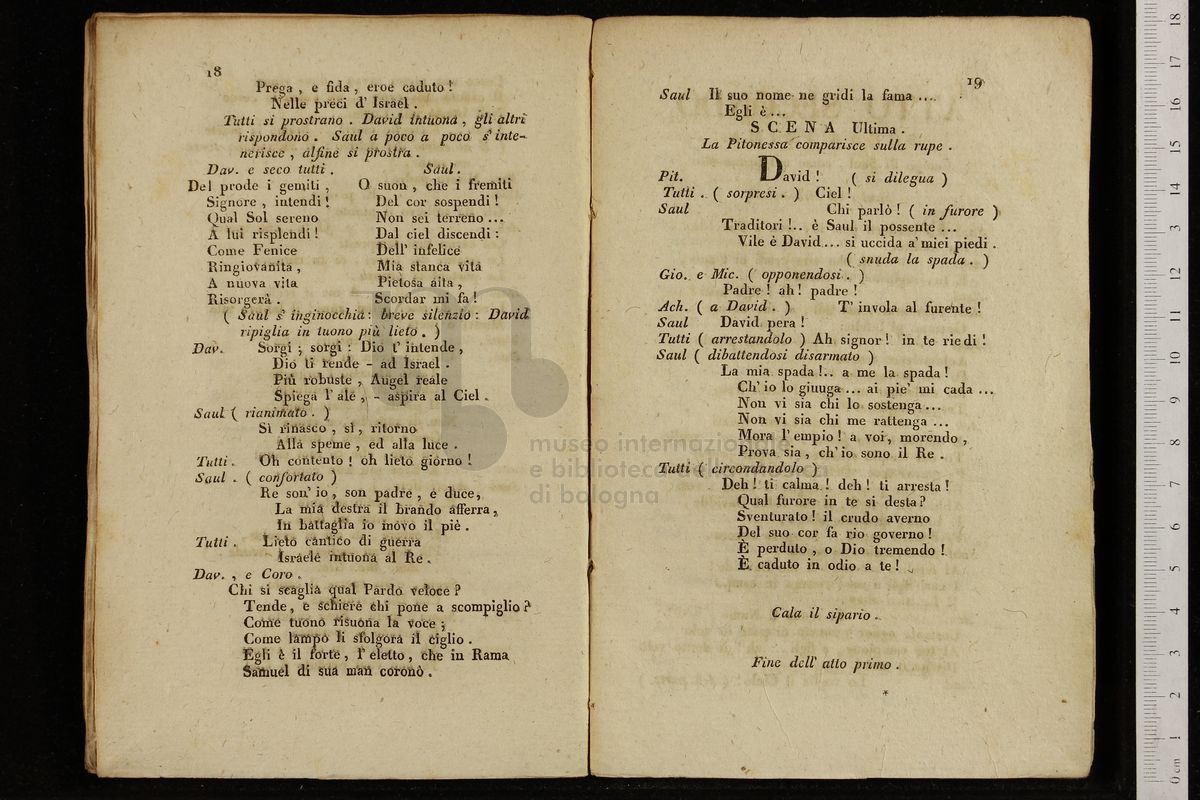 18
Prega , e fida , eroe caduto !
Nelle preci d' Israel .
Tutti si prostrano . David intuona , gli altri
rispondono . Saul a poco a poco s' inte-
nerisce , alfine si prostra .
Dav. e seco tutti .
Del prode i gemiti ,
Signore , intendi !
Qual Sol sereno
A lui risplendi !
Come Fenice
Ringiovanita ,
A nuova vita
Risorgerà .
Saul .
O suon , che i fremiti
Del cor sospendi !
Non sei terreno ...
Dal ciel discendi :
Dell' infelice
Mia stanca vita
Pietosa aita ,
Scordar mi fa !
( Saul s' inginocchia : breve silenzio : David
ripiglia in tuono più lieto . )
Dav. Sorgi ; sorgi : Dio t' intende ,
Dio ti rende - ad Israel .
Più robuste , Augel reale
Spiega l' ale , - aspira al Ciel .
Saul ( rianimato . )
Sì rinasco , sì , ritorno
Alla speme , ed alla luce .
Tutti . Oh contento ! oh lieto giorno !
Saul . ( confortato )
Re son' io , son padre , e duce,
La mia destra il brando afferra ,
In battaglia io movo il piè .
Tutti . Lieto cantico di guerra
Israele intuona al Re .
Dav. , e Coro .
Chi si scaglia qual Pardo veloce ?
Tende, e schiere chi pone a scompiglio ?
Come tuono risuona la voce ;
Come lampo li sfolgora il ciglio .
Egli è il forte , l' eletto , che in Rama
Samuel di sua man coronò .
19
Saul Il suo nome ne gridi la fama ....
Egli è ...
SCENA Ultima .
La Pitonessa comparisce sulla rupe .
Pit. David ! ( si dilegua )
Tutti . ( sorpresi . ) Ciel !
Saul Chi parlò ! ( in furore )
Traditori !.. è Saul il possente ...
Vile è David .... si uccida a' miei piedi .
( snuda la spada . )
Gio. e Mic. ( opponendosi . )
Padre ! ah ! padre !
Ach. ( a David . ) T' invola al furente !
Saul David pera !
Tutti ( arrestandolo ) Ah signor ! in te riedi !
Saul ( dibattendosi disarmato )
La mia spada !.. a me la spada !
Ch' io lo giuuga ... ai pie' mi cada ...
Non vi sia chi lo sostenga ...
Non vi sia chi me rattenga ...
Mora l' empio ! a voi , morendo ,
Prova sia , ch' io sono il Re .
Tutti ( circondandolo )
Deh ! ti calma ! deh ! ti arresta !
Qual furore in te si desta ?
Sventurato ! il crudo averno
Del suo cor fa rio governo !
È perduto , o Dio tremendo !
È caduto in odio a te !
Cala il sipario .
Fine dell' atto primo .
museo internazionale
e biblioteca
di bologna